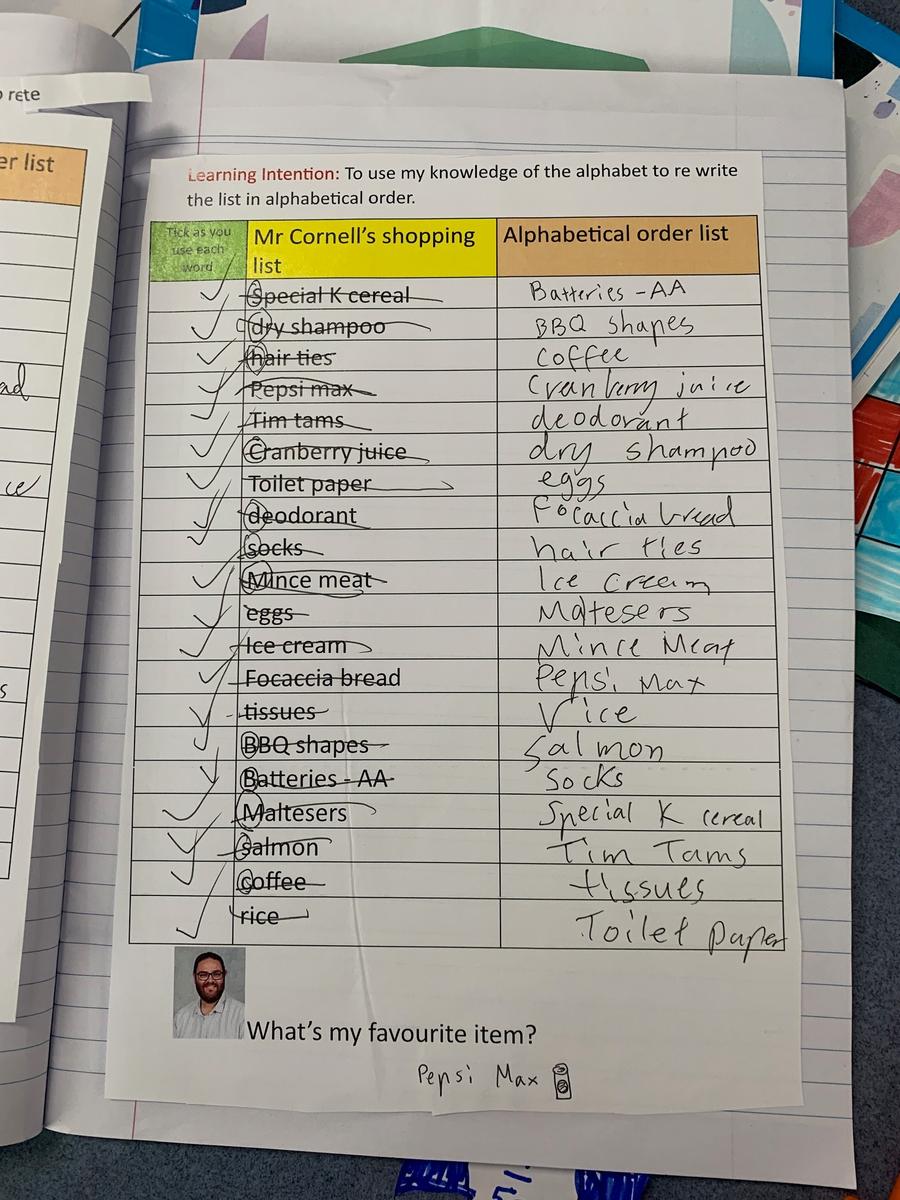 o rete
er list
ad
ce
s
Learning Intention: To use my knowledge of the alphabet to re write
the list in alphabetical order.
Tick as you
use each
word
Mr Cornell's shopping
list
Alphabetical order list
Special K cereal Batteries - AA
dry shampoo BBQ shapes
hair ties coffee
Pepsi max Cranberry juice
Tim tams deodorant
Cranberry juice dry shampoo
Toilet paper eggs
deodorant Focaccia bread
socks hair ties
Mince meat Ice Cream
eggs Maltesers
Ice cream Mince Meat
Focaccia bread Pepsi Max
tissues rice
BBQ shapes Salmon
Batteries - AA Socks
Maltesers Special K cereal
salmon Tim Tams
coffee tissues
rice Toilet paper
What's my favourite item?
Pepsi Max